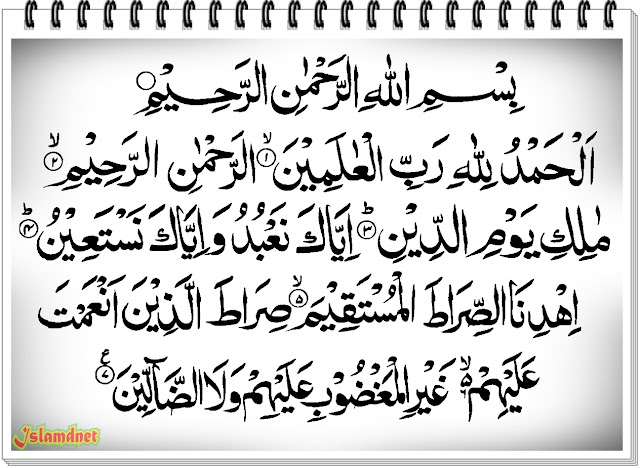 بِسْمِ اللهِ الرَّحْمٰنِ الرَّحِيْمِ
اَلْحَمْدُ لِلّٰهِ رَبِّ الْعٰلَمِيْنَ ۙ﴿١﴾ الرَّحْمٰنِ الرَّحِيْمِ ۙ﴿٢﴾
مٰلِكِ يَوْمِ الدِّيْنِ ۗ﴿٣﴾ اِيَّاكَ نَعْبُدُ وَاِيَّاكَ نَسْتَعِيْنُ ۗ﴿٤﴾
اِهْدِنَا الصِّرَاطَ الْمُسْتَقِيْمَ ۙ﴿٥﴾ صِرَاطَ الَّذِيْنَ اَنْعَمْتَ
عَلَيْهِمْ ۙ﴿٦﴾ غَيْرِ الْمَغْضُوْبِ عَلَيْهِمْ وَلَا الضَّاۤلِّيْنَ ﴿٧﴾ ع
Islamdnet